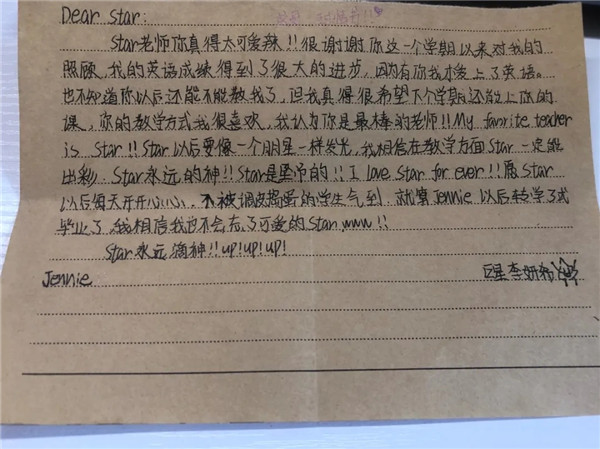 Dear Star:
Star老师你真得太可爱辣!!很谢谢你这一个学期以来对我的
照顾,我的英语成绩得到了很大的进步,因为有你我才爱上了英语。
也不知道你以后还能不能教我了,但我真得很希望下个学期还能上你的
课,你的教学方式我很喜欢,我认为你是最棒的老师!!My favrite teacher
is Star!!Star以后要像一个明星一样发光,我相信在教学方面Star一定能
出彩,Star永远的神!!Star是坠吊的!!I love Star for ever!!愿Star
以后每天开开心心心,不被调皮捣蛋的学生气到,就算Jennie以后转学了或
毕业了,我相信我也不会忘了可爱的Star,www!!
Star永远滴神!!up!up!up!
Jennie